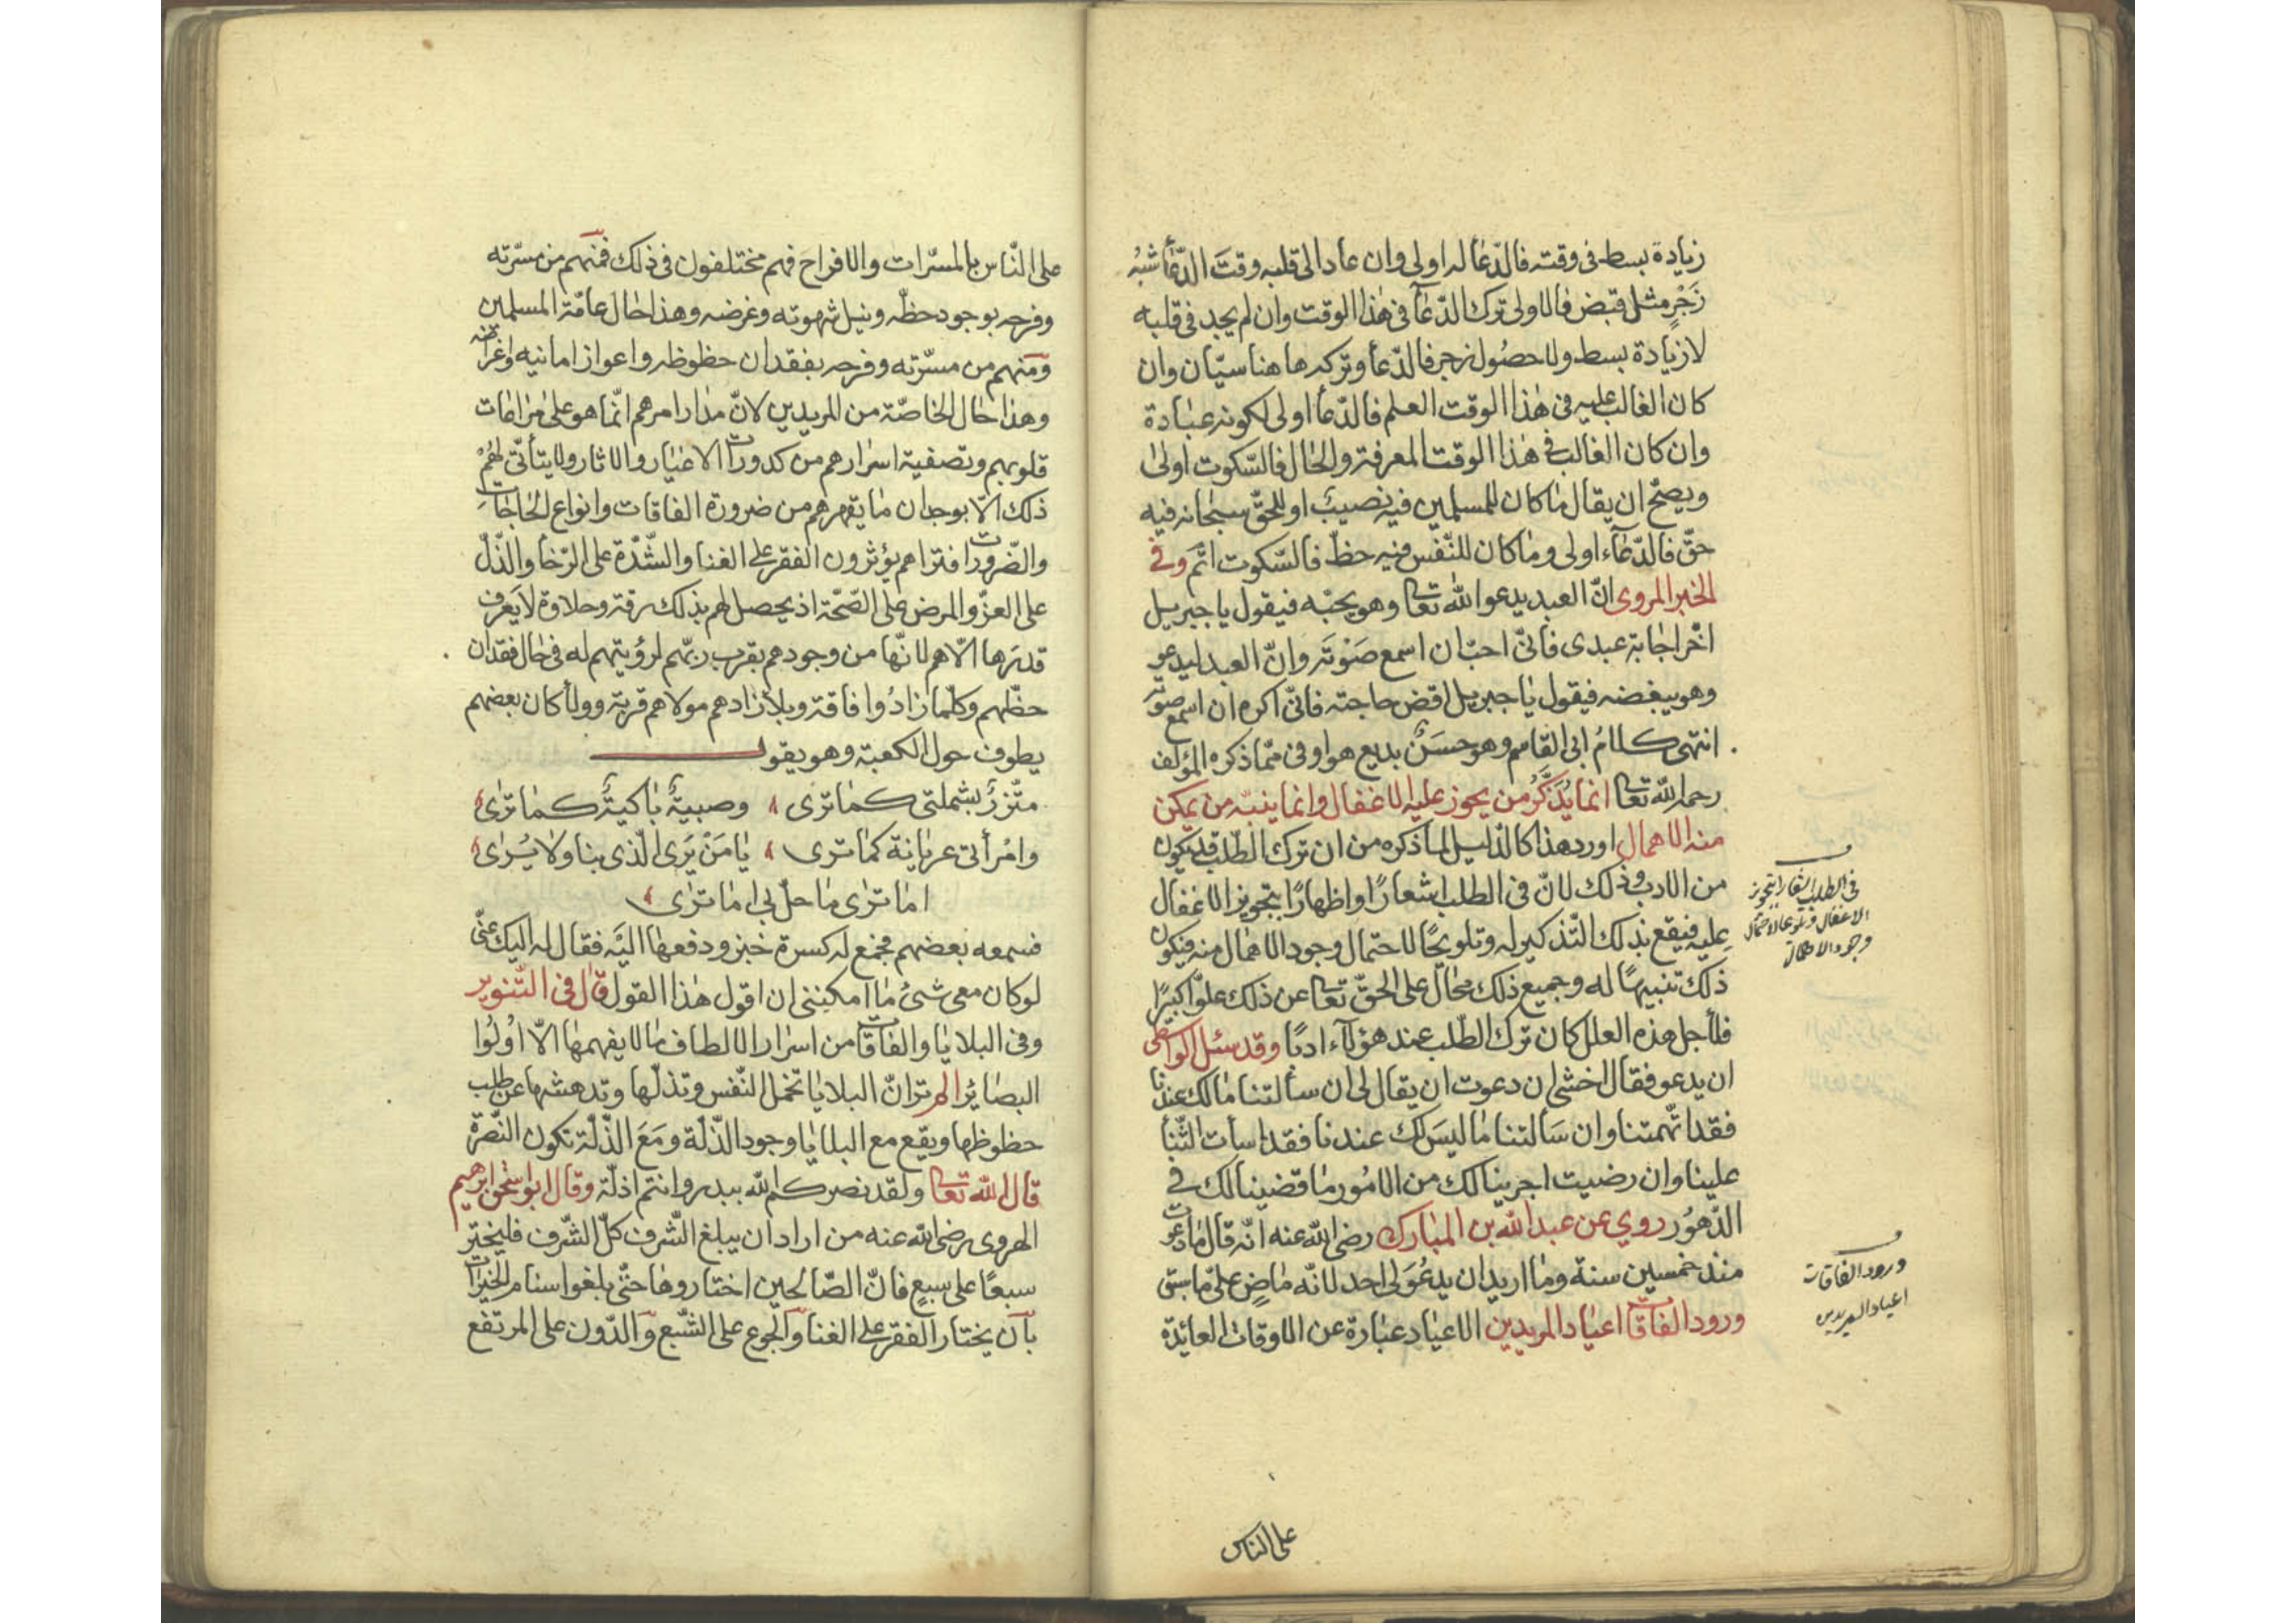 زيادة بسط فى وقته فالدّعا له اولى وان عاد الى قلبه وقتَ الدّعا شبْهُ
زَجْرٍ مثل قبض فالاولى ترك الدّعآ فى هٰذا الوقت وان لم يجد فى قلبه
لا زيادة بسط ولا حصُول زجر فالدّعا وتركه هاهنا سيّان وان
كان الغالب عليه فى هٰذا الوقت العلم فالدّعأ اولى لكونه عبادة
وان كان الغالب فى هٰذا الوقت المعرفة والحال فالسّكوت اولىٰ
ويصحّ ان يقال ما كان للمسلمين فيه نصيبٌ او للحقّ سبحانه فيه
حقّ فالدّعآء اولى وما كان للنّفس فيه حظّ فالسّكوت اتمّ وفى
الخبر المروى انّ العبد يدعو الله تعا وهو يحبّه فيقول يا جبريل
اخّر اجابة عبدى فانّى احبّ ان اسمع صَوْتَه وانّ العبد ليدعو
وهو يبغضه فيقول يا جبريل اقض حاجته فانّى اكره ان اسمع صوته
انتهى كلامُ ابى القاسم وهو حسَنٌ بديع هو اوفى ممّا ذكره المؤلف
رحمه الله تعا انما يُذَكَّرُ من يجوز عليه الاغفال وانما ينبّه من يمكن
منه الاهمال اورد هذا كالدّليل لما ذكره من ان ترك الطّلب قد يكون
من الادب وذلك لانّ فى الطلب اشعارًا واظهارًا بتجويز الاغفال
عليه فيقع بذلك التّذكير له وتلويحًا لاحتمال وجود الاهمال منه فيكون
ذلك تنبيهًا له وجميع ذلك محالٌ على الحقّ تعا عن ذلك علوًّا كبيرًا
فلأجل هذه العلل كان ترك الطّلب عند هؤلآء ادبًا وقد سئل الواسطى
ان يدعو فقال اخشى ان دعوت ان يقال لى ان سألتنا ما لك عندنا
فقد اتّهمتنا وان سَالتنا ما ليسَ لك عندنا فقد اسأت الثّنأ
علينا وان رضيت اجرينا لك من الامُور ما قضينا لك فى
الدّهوُر روي عن عبد الله بن المبارك رضى الله عنه انّه قال ما دعوت
منذ خمسين سنة وما اريد ان يدعُوَ لى احد لانّه ماضٍ علىّ ما سبق
ورود الفاقات اعياد المريدين الاعياد عبارة عن الاوقات العائدة
فى الطلب اشعار بتجويز
الاغفال وتلويحا لاحتمال
وجود الاهمال
ورود الفاقات
اعياد المريدين
على الناس
على النّاس بالمسرّات والافراح فهم مختلفون فى ذلك فمنهم من مسرّته
وفرحه بوجود حظّه ونيل شهوته وغرضه وهذا حال عامّة المسلمين
ومنهم من مسرّته وفرحه بفقدان حظوظه واعواز امانيه واغراضه
وهذا حال الخاصّة من المريدين لانّ مدار امرهم انّما هو على مراعات
قلوبهم وتصفية اسرارهم من كدورات الاغيار والاثار ولا يتأتّى لهُمْ
ذلك الّا بوجدان ما يقهرهم من ضرورة الفاقات وانواع الحاجات
والضّرورات فتراهم يؤثرون الفقر على الغنا والشّدّة على الرّخأ والذّلّ
على العزّ والمرض على الصّحّة اذ يحصل لهم بذلك رقة وحلاوة لا يعرف
قدرها الّا هم لانّها من وجودهم بقرب ربّهم لرؤيتهم له فى حال فقدان
حظّهم وكلّما زادُوا فاقة وبلاً زادهم مولاهم قربة وولأ كان بعضهم
يطوف حول الكعبة وهو يقول
متّزرٌ بشملتى كما ترى وصبيةٌ باكيةٌ كما ترٰى
وامْرأتى عريانة كما ترى يا مَنْ يَرَى الّذى بنا ولا يُرٰى
اما ترٰى ما حلّ بى اما ترٰى
فسمعه بعضهم فجمع له كسرة خبز ودفعها اليْه فقال له اليك عنّى
لو كان معى شئ ما امكننى ان اقول هٰذا القول قال فى التّنوير
وفى البلايا والفاقات من اسرار الالطاف ما لا يفهمها الّا اُولُوا
البصائر الم تر انّ البلايا تخمل النّفس وتذلّها وتدهشها عن طلب
حظوظها ويقع مع البلايا وجود الذّلة ومَعَ الذّلة تكون النّصرة
قال الله تعا ولقد نصركم الله ببدر وانتم اذلّة وقال ابو اسحٰق ابرهيم
الهروى رضى الله عنه من اراد ان يبلغ الشّرف كلّ الشّرف فليختر
سبعًا على سبعٍ فانّ الصّالحين اختاروها حتّى بلغوا سنام الخيرات
بان يختار الفقر على الغنا والجوع على الشّبع والدّون على المرتفع